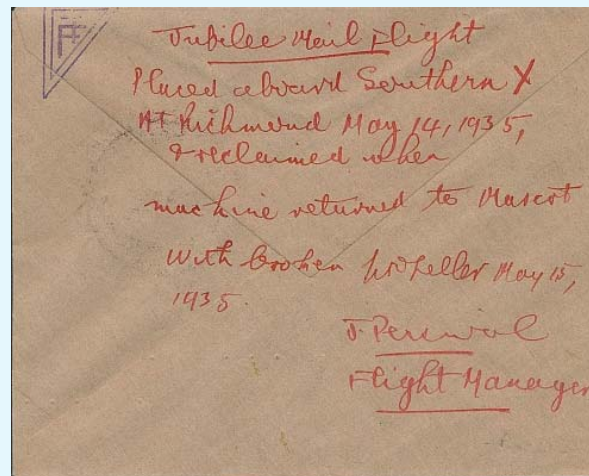 Jubilee Mail Flight
Placed aboard Southern X
At Richmond May 14, 1935,
& reclaimed when
machine returned to Mascot
with broken propeller May 15,
1935.
J. Percival
Flight Manager